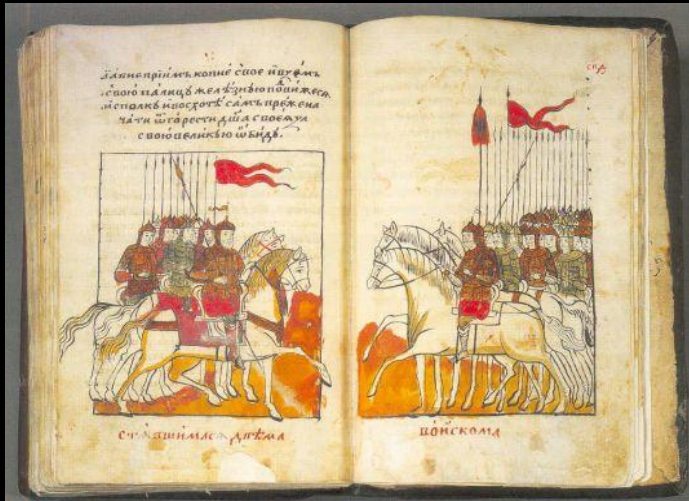 и абие приимъ копие свое и вꙁемъ
свою палицꙋ желѣзнꙋю подвижеся
исполкꙋ и восхотѣ самъ преже на
чати ѿ горести дша своеѧ
свою великꙋю ѡбидꙋ.
ставшимася двѣма
спд
воискома